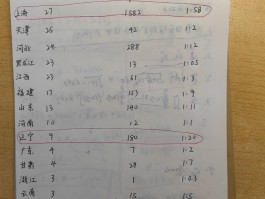 上海 27 1582 1:58
天津 25 42 1:2
河北 24 288 1:12
黑龙江 23 13 1:0.5
江西 23 61 1:3
福建 17 153 1:9
山东 13 140 1:11
河南 10 12 1:1
辽宁 9 180 1:20
广东 4 7 1:2
甘肃 4 28 1:7
浙江 3 1 1:0.3
云南 3 15 1:5